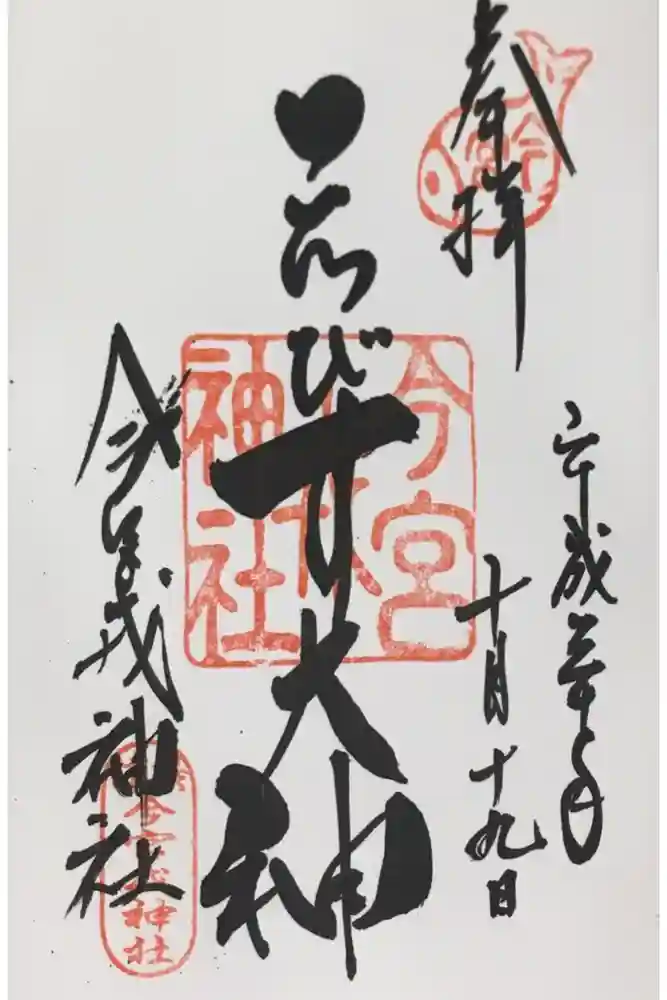 奉拝
平成
年
十月十九日
ゑびす大神
今宮戎神社
今宮
今宮戎神社
今宮戎神社